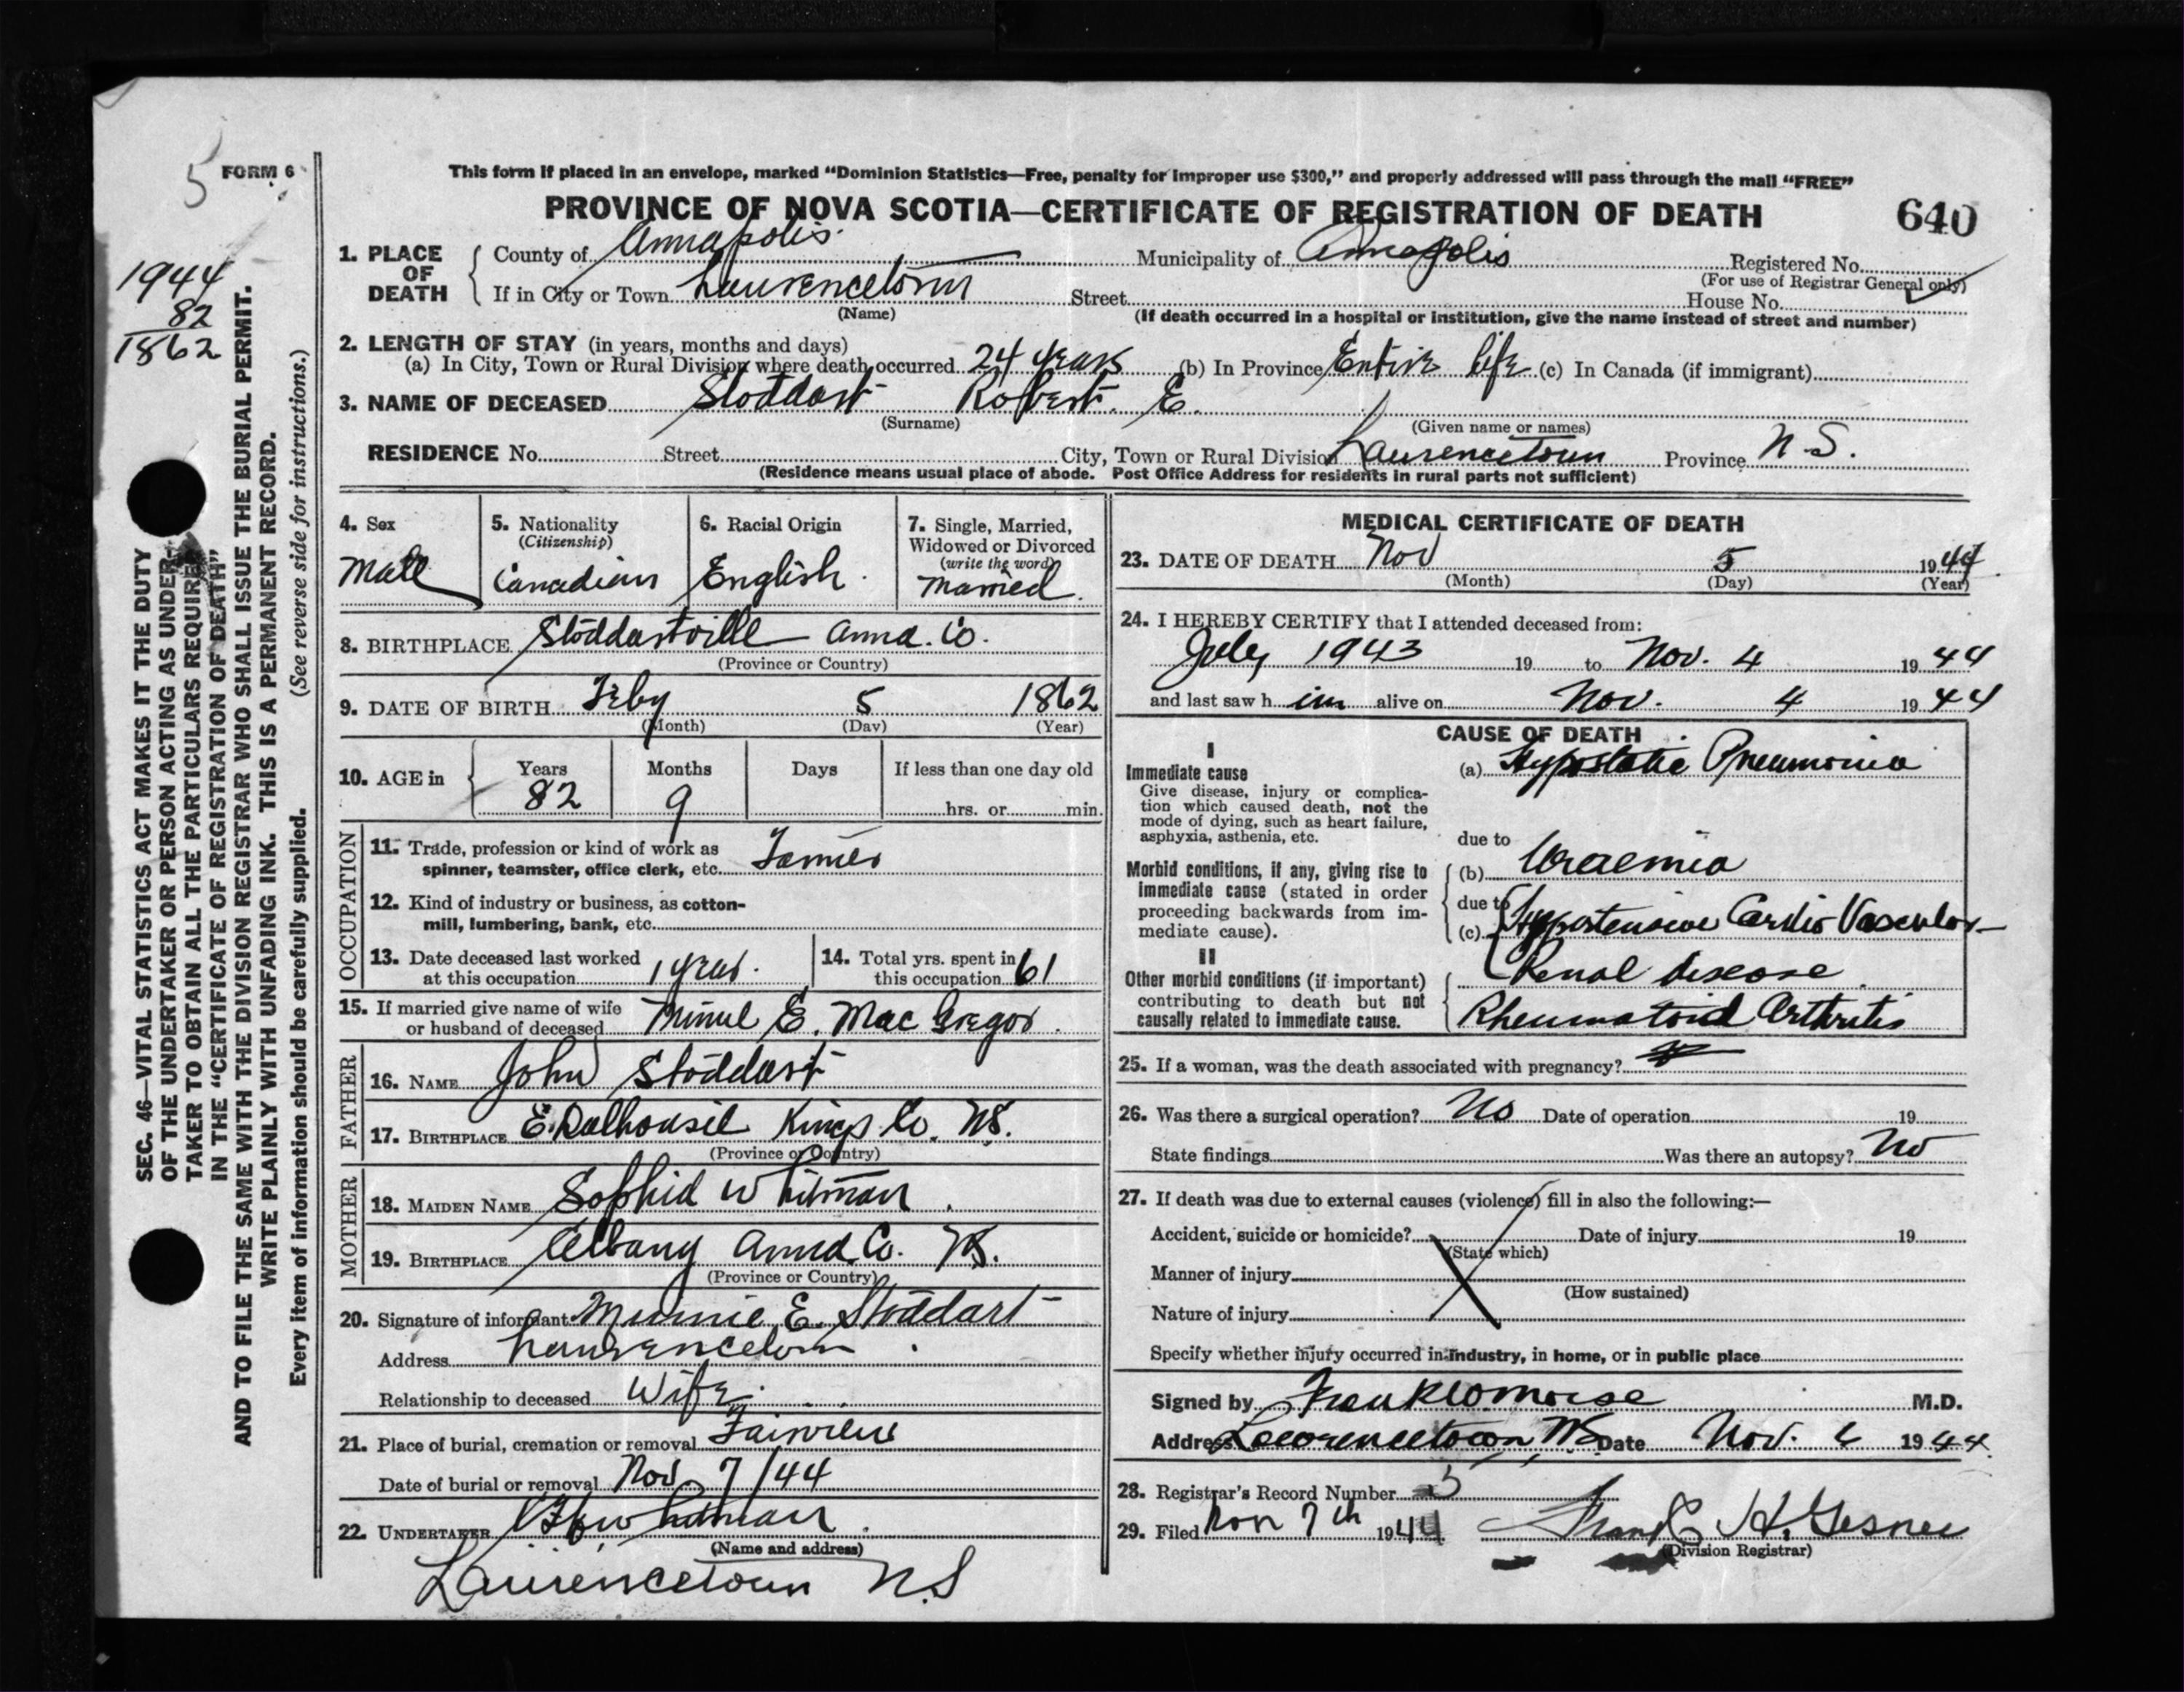 5 FORM 6
This form if placed in an envelope, marked “Dominion Statistics—Free, penalty for improper use $300,” and properly addressed will pass through the mail “FREE”
PROVINCE OF NOVA SCOTIA—CERTIFICATE OF REGISTRATION OF DEATH 640
1944
82
1862
SEC. 46—VITAL STATISTICS ACT MAKES IT THE DUTY
OF THE UNDERTAKER OR PERSON ACTING AS UNDER-
TAKER TO OBTAIN ALL THE PARTICULARS REQUIRED
IN THE “CERTIFICATE OF REGISTRATION OF DEATH”
AND TO FILE THE SAME WITH THE DIVISION REGISTRAR WHO SHALL ISSUE THE BURIAL PERMIT.
WRITE PLAINLY WITH UNFADING INK. THIS IS A PERMANENT RECORD.
Every item of information should be carefully supplied. (See reverse side for instructions.)
1. PLACE OF DEATH County of Annapolis Municipality of Annapolis Registered No.
(For use of Registrar General only)
If in City or Town Laurencetown Street House No.
(Name) (If death occurred in a hospital or institution, give the name instead of street and number)
2. LENGTH OF STAY (in years, months and days)
(a) In City, Town or Rural Division where death occurred 24 years (b) In Province Entire life (c) In Canada (if immigrant)
3. NAME OF DECEASED Stoddart Robert E.
(Surname) (Given name or names)
RESIDENCE No. Street City, Town or Rural Division Laurencetown Province N.S.
(Residence means usual place of abode. Post Office Address for residents in rural parts not sufficient)
4. Sex 5. Nationality 6. Racial Origin 7. Single, Married,
(Citizenship) Widowed or Divorced
(write the word)
Male Canadian English Married
8. BIRTHPLACE Stoddartville Anna. Co.
(Province or Country)
9. DATE OF BIRTH Feby 5 1862
(Month) (Day) (Year)
10. AGE in Years Months Days If less than one day old
82 9 hrs. or min.
OCCUPATION
11. Trade, profession or kind of work as
spinner, teamster, office clerk, etc. Farmer
12. Kind of industry or business, as cotton-
mill, lumbering, bank, etc.
13. Date deceased last worked
at this occupation 1 year.
14. Total yrs. spent in
this occupation 61
15. If married give name of wife
or husband of deceased Minnie E. MacGregor
FATHER
16. NAME John Stoddart
17. BIRTHPLACE E. Dalhousie Kings Co. NS.
(Province or Country)
MOTHER
18. MAIDEN NAME Sophia Whitman
19. BIRTHPLACE Albany Anna. Co. NS.
(Province or Country)
20. Signature of informant Minnie E. Stoddart
Address Laurencetown
Relationship to deceased Wife
21. Place of burial, cremation or removal Fairview
Date of burial or removal Nov 7/44
22. UNDERTAKER Whitman
(Name and address)
Laurencetown N.S
MEDICAL CERTIFICATE OF DEATH
23. DATE OF DEATH Nov 5 1944
(Month) (Day) (Year)
24. I HEREBY CERTIFY that I attended deceased from:
July 1943 19 to Nov. 4 1944
and last saw him alive on Nov. 4 1944
CAUSE OF DEATH
I
Immediate cause
Give disease, injury or complica-
tion which caused death, not the
mode of dying, such as heart failure,
asphyxia, asthenia, etc.
(a) Hypostatic Pneumonia
due to
Morbid conditions, if any, giving rise to
immediate cause (stated in order
proceeding backwards from im-
mediate cause).
(b) Uraemia
due to
(c) Hypertensive Cardio Vascular
Renal disease
II
Other morbid conditions (if important)
contributing to death but not
causally related to immediate cause.
Rheumatoid Arthritis
25. If a woman, was the death associated with pregnancy?
26. Was there a surgical operation? No Date of operation 19
State findings Was there an autopsy? No
27. If death was due to external causes (violence) fill in also the following:—
Accident, suicide or homicide? Date of injury 19
(State which)
Manner of injury
(How sustained)
Nature of injury
Specify whether injury occurred in industry, in home, or in public place
Signed by Morse M.D.
Address Lawrencetown NS Date Nov. 1944
28. Registrar's Record Number 3
29. Filed Nov 7th 1944 Frank H. Gesner
(Division Registrar)